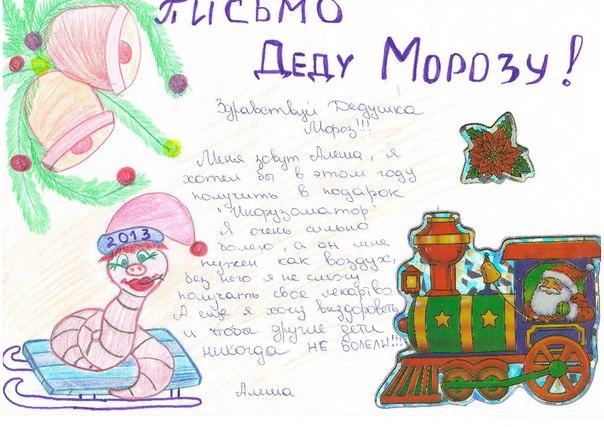 ПИСЬМО
ДЕДУ МОРОЗУ!
Здравствуй Дедушка
Мороз!!!
Меня зовут Алеша, я
хотел бы в этом году
получить в подарок
"Инфузоматор"
Я очень сильно
болею, а он мне
нужен как воздух,
без него я не смогу
получать свое лекарство
А еще я хочу выздороветь
и чтобы другие дети
никогда НЕ БОЛЕЛИ!!!
Алеша
2013